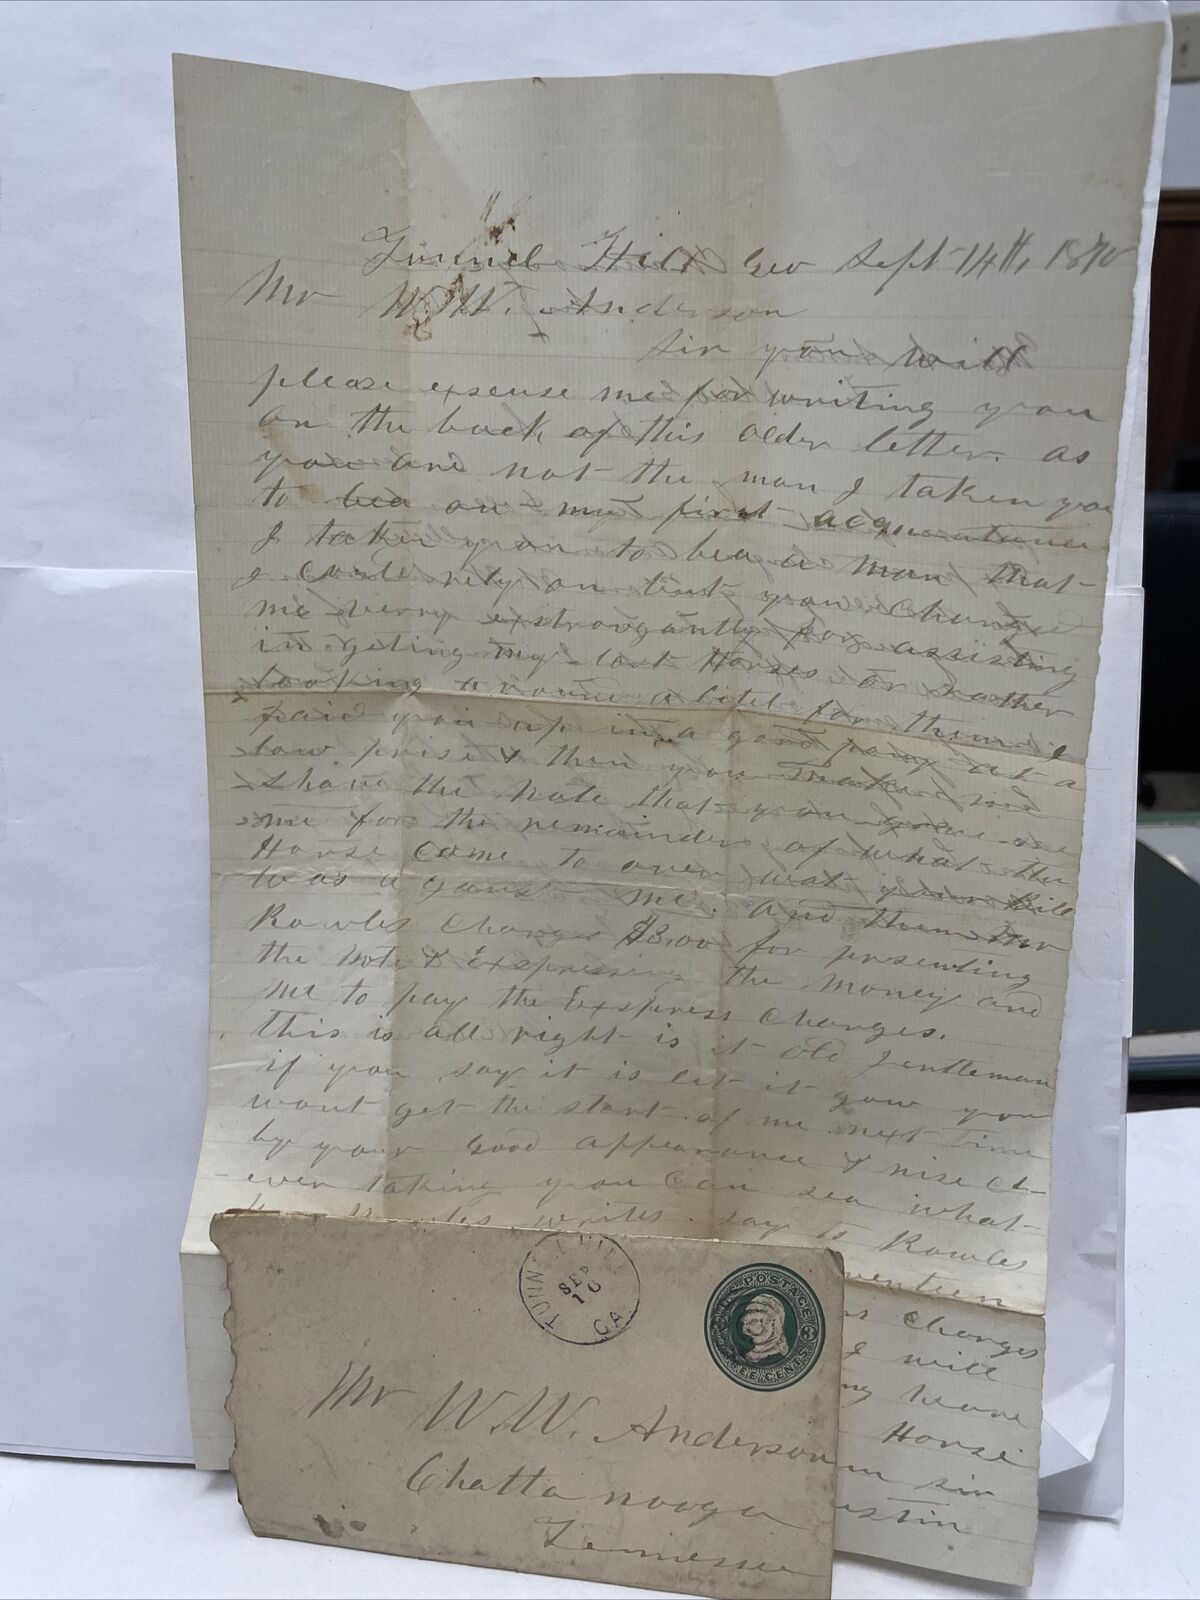 Tunnel Hill Geo Sept 14th, 1870
Mr W.W. Anderson
Sir you will
please excuse me for writing you
on the back of this older letter. as
you are not the man I taken you
to bea on my first acquantance
I taken you to bea a man that
I could rely on but you charge
me verry exstrorgantly for assisting
in geting my lost Horses or rather
looking around a litel for them I
paid you up in a good pony at a
low prise & then you
shave the note that you gave me
me for the remainders of what the
Horse came to over wat your Bill
was a ganst me. and then Mr
Rowles charge $3.00 for presenting
the note & Expressing the money and
me to pay the Exspress charges.
this is all right is it old gentleman
if you say it is let it gow you
wont get the start of me next time
by your good appearance & nise cl-
ever talking you can sea what
writes. say to Rowles
charges
I will
Horse
sir
TUNNEL HILL
SEP
10
GA.
U.S. POSTAGE
3
THREE CENTS
Mr W.W. Anderson
Chatta nooga
Tennessee